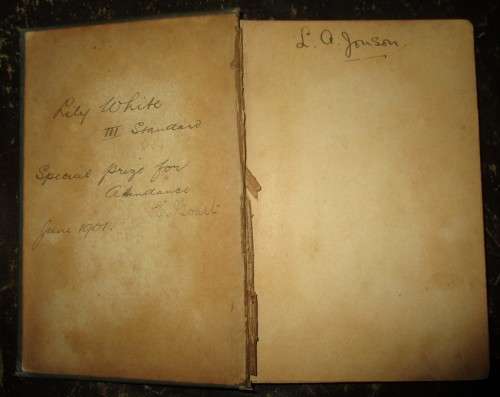 Lily White
III Standard
Special prize for
Atandance
June 1901.
L. A. Jonson.